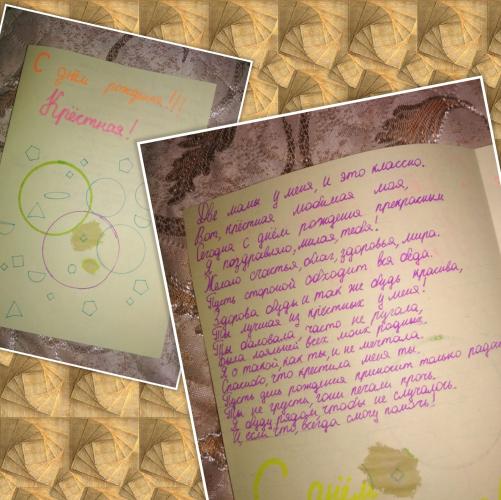 С днём рождения!!!
Крёстная!
Две мамы у меня, и это классно.
Вот, крёстная любимая моя,
Сегодня с днём рождения прекрасным
Я поздравляю, милая, тебя!
Желаю счастья, благ, здоровья, мира.
Пусть стороной обходит вся беда.
Здорова будь и так же будь красива,
Ты лучшая из крёстных у меня!
Ты баловала часто не ругала,
Была лояльней всех моих родных.
Я о такой, как ты, и не мечтала.
Спасибо, что крестила меня ты.
Пусть день рождения приносит только радость
Ты не грусть, гони печали прочь.
Я буду рядом, чтобы не случалось.
И, если что, всегда смогу помочь!
С днём